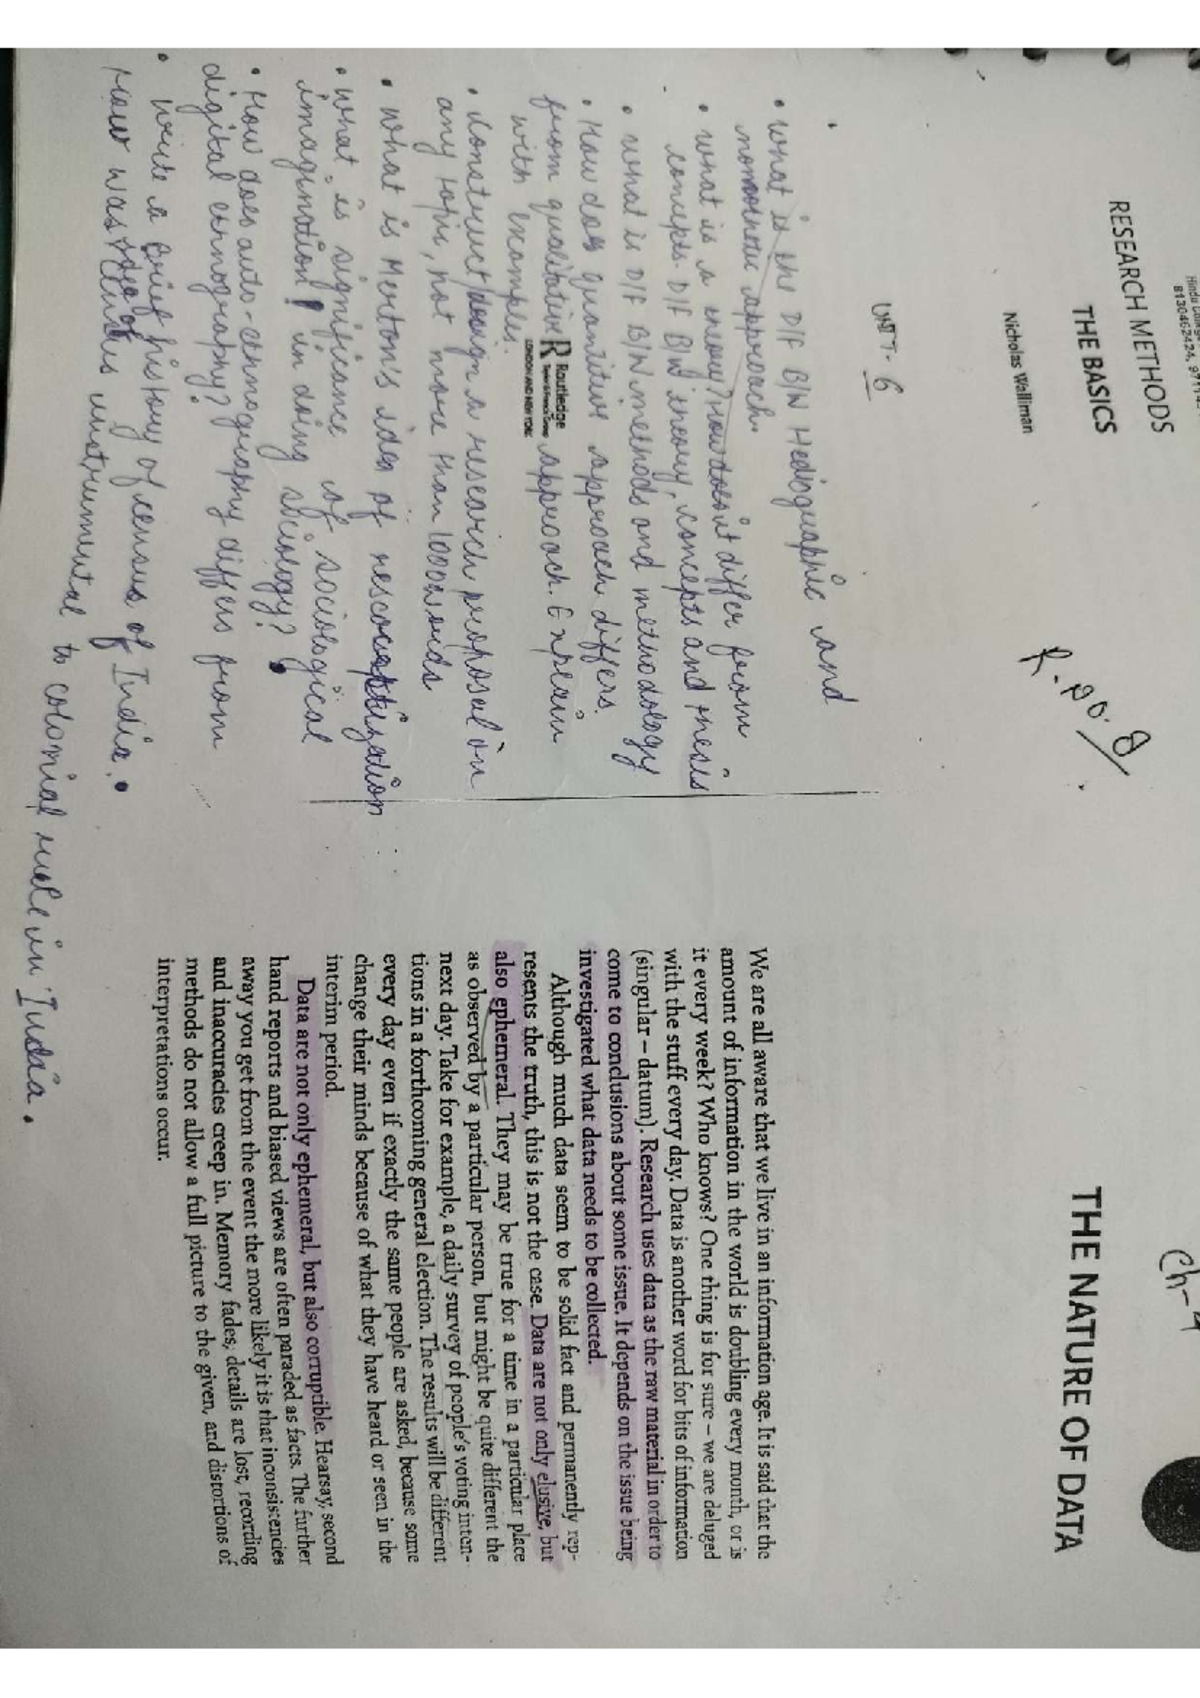 Hindu
8130462424, 9711
RESEARCH METHODS
THE BASICS
Nicholas Walliman
R. no. 8
UNIT-6
• What is the D/F B/W and
approach.
• What is a theory? How does it differ from
concepts. D/F B/W theory, concepts and thesis
• What is D/F B/W methods and methodology
• How does quantitive approach differs
from qualitative approach. Explain
with examples.
R Routledge
Taylor & Francis Group
LONDON AND NEW YORK
• Construct/design a research proposal on
any topic, not more than 1000 words
• What is Merton's idea of
• What is significance of sociological
imagination? in doing sociology?
• How does auto-ethnography differs from
digital ethnography?
• Write a brief history of census of India.
How was idea of census instrumental to colonial rule in India.
Ch-4
THE NATURE OF DATA
We are all aware that we live in an information age. It is said that the
amount of information in the world is doubling every month, or is
it every week? Who knows? One thing is for sure – we are deluged
with the stuff every day. Data is another word for bits of information
(singular – datum). Research uses data as the raw material in order to
come to conclusions about some issue. It depends on the issue being
investigated what data needs to be collected.
Although much data seem to be solid fact and permanently rep-
resents the truth, this is not the case. Data are not only elusive, but
also ephemeral. They may be true for a time in a particular place
as observed by a particular person, but might be quite different the
next day. Take for example, a daily survey of people's voting inten-
tions in a forthcoming general election. The results will be different
every day even if exactly the same people are asked, because some
change their minds because of what they have heard or seen in the
interim period.
Data are not only ephemeral, but also corruptible. Hearsay, second
hand reports and biased views are often paraded as facts. The further
away you get from the event the more likely it is that inconsistencies
and inaccuracies creep in. Memory fades, details are lost, recording
methods do not allow a full picture to the given, and distortions of
interpretations occur.